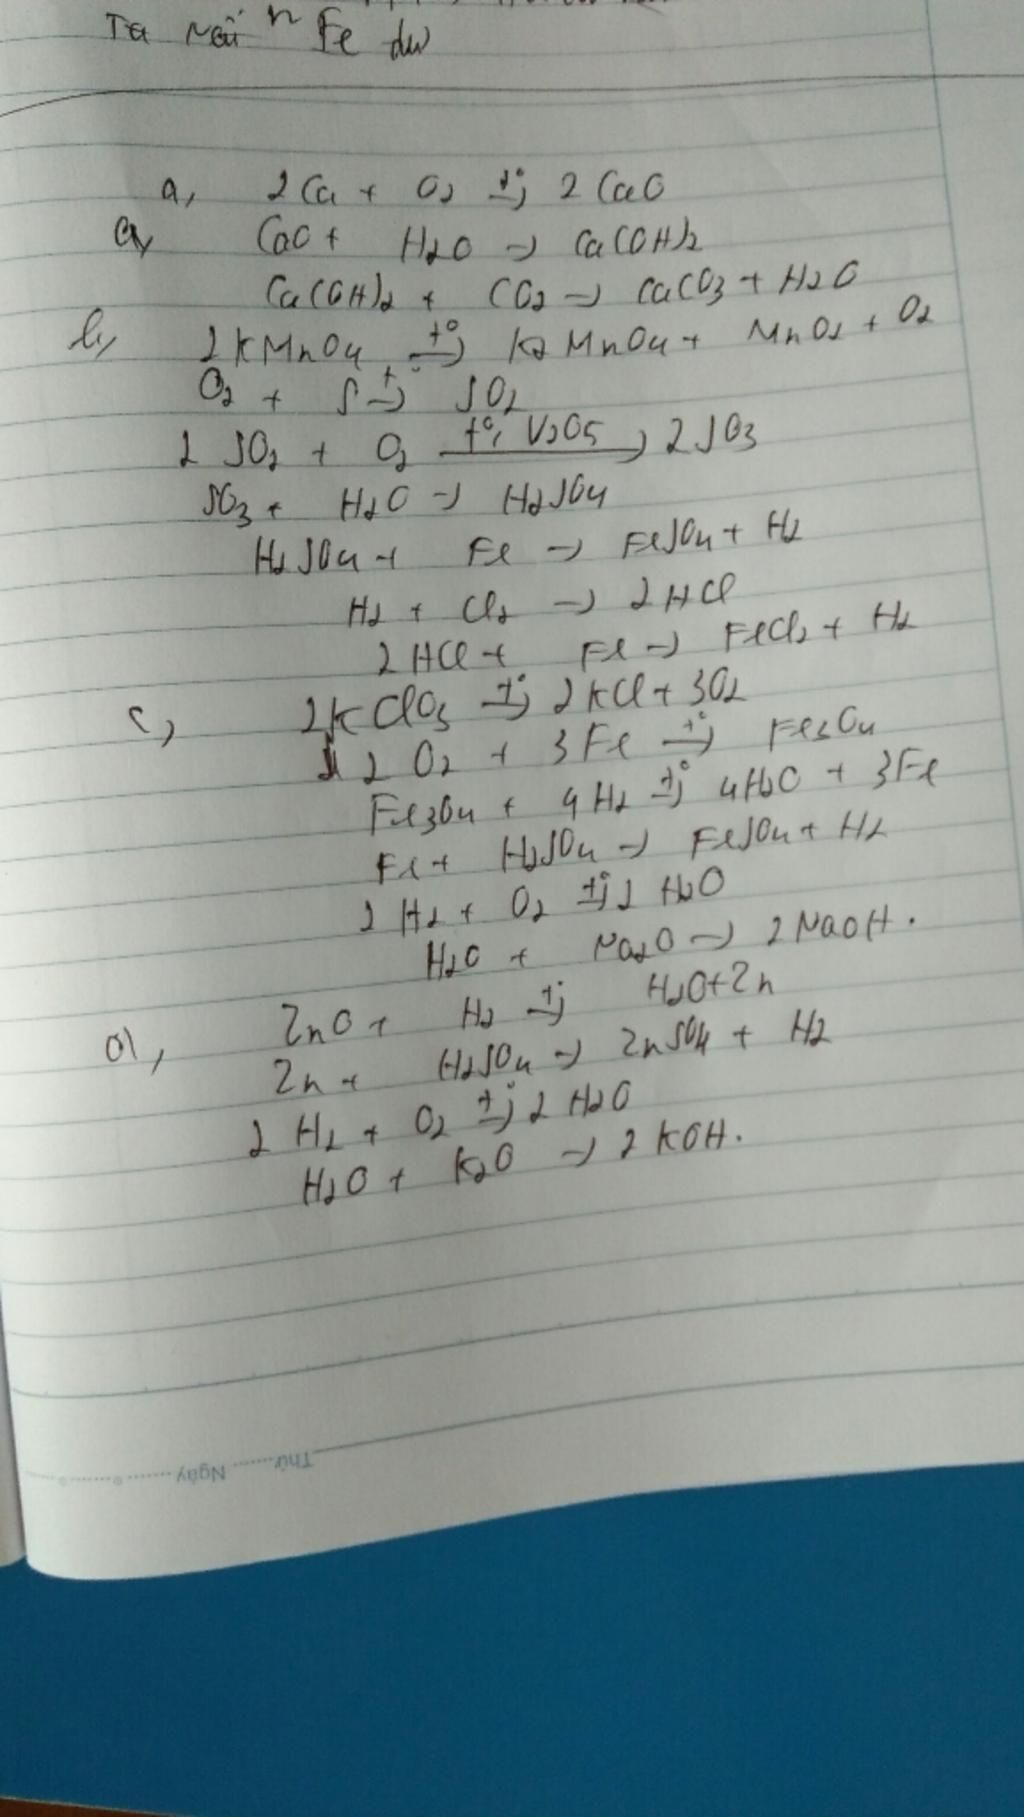 Ta n Fe dư
a, 2Ca + O2 t°→ 2CaO
a, CaO + H2O → Ca(OH)2
Ca(OH)2 + CO2 → CaCO3 + H2O
b, 2KMnO4 t°→ K2MnO4 + MnO2 + O2
O2 + S t°→ SO2
2SO2 + O2 t°, V2O5→ 2SO3
SO3 + H2O → H2SO4
H2SO4 + Fe → FeSO4 + H2
H2 + Cl2 → 2HCl
2HCl + Fe → FeCl2 + H2
c, 2KClO3 t°→ 2KCl + 3O2
2O2 + 3Fe t°→ Fe3O4
Fe3O4 + 4H2 t°→ 4H2O + 3Fe
Fe + H2SO4 → FeSO4 + H2
2H2 + O2 t°→ 2H2O
H2O + Na2O → 2NaOH.
d, ZnO + H2 t°→ H2O + Zn
Zn + H2SO4 → ZnSO4 + H2
2H2 + O2 t°→ 2H2O
H2O + K2O → 2KOH.
Thứ Ngày